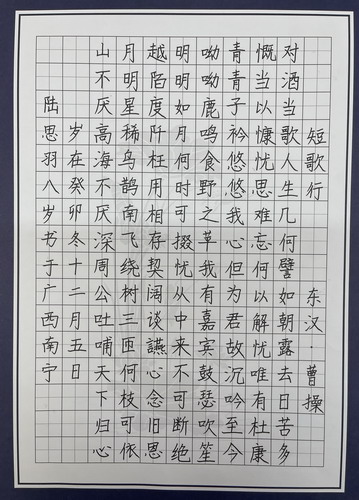 短歌行 东汉·曹操
对酒当歌人生几何譬如朝露去日苦多
慨当以慷忧思难忘何以解忧唯有杜康
青青子衿悠悠我心但为君故沉吟至今
呦呦鹿鸣食野之苹我有嘉宾鼓瑟吹笙
明明如月何时可掇忧从中来不可断绝
越陌度阡枉用相存契阔谈讌心念旧恩
月明星稀乌鹊南飞绕树三匝何枝可依
山不厌高海不厌深周公吐哺天下归心
岁在癸卯冬十二月五日
陆思羽八岁书于广西南宁